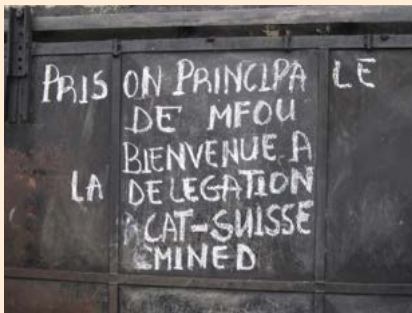 PRISON PRINCIPALE
DE MFOU
BIENVENUE A
LA DELEGATION
ACAT-SUISSE
EMINED